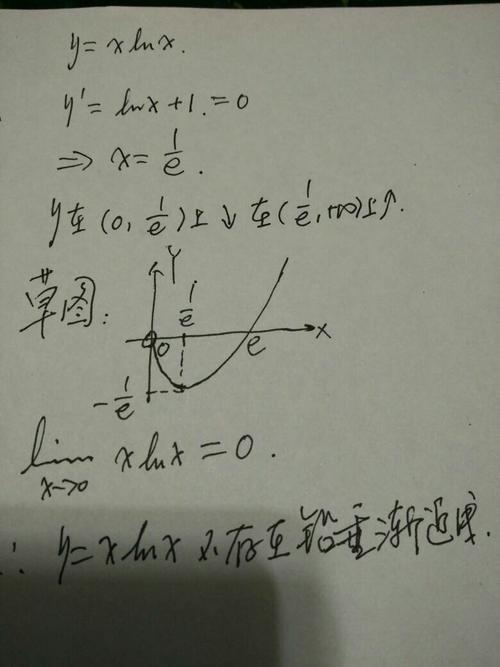 y = x ln x.
y' = ln x + 1. = 0
⇒ x = 1/e.
y在(0, 1/e)上↓在(1/e, +∞)上↑.
草图:
Y
1/e
0
e
x
-1/e
lim x→0 x ln x = 0.
∴ y = x ln x 不存在铅垂渐近线.